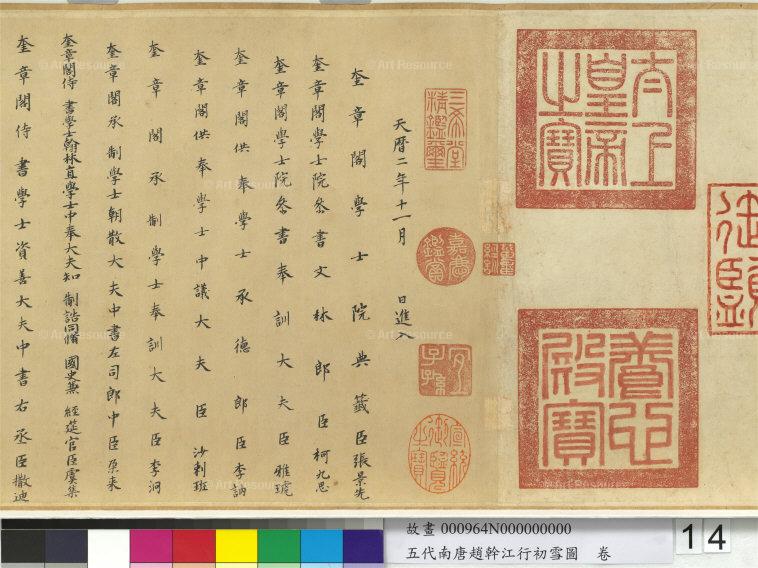 御覽
太上
皇帝
之寶
養心
殿寶
三希堂
精鑑璽
嘉慶
鑑賞
宜
子孫
宣統
御覽
之寶
天曆二年十一月 日進入
奎章閣學士院典籤臣張景先
奎章閣學士院叅書文林郎臣柯九思
奎章閣學士院叅書奉訓大夫臣雅琥
奎章閣供奉學士承德郎臣李訥
奎章閣供奉學士中議大夫臣沙剌班
奎章閣承制學士奉訓大夫臣李泂
奎章閣承制學士朝散大夫中書左司郎中臣朶来
奎章閣侍書學士翰林直學士中奉大夫知制誥同脩國史兼經筵官臣虞集
奎章閣侍書學士資善大夫中書右丞臣撒迪
故畫 000964N000000000
五代南唐趙幹江行初雪圖 卷
14
Art Resource